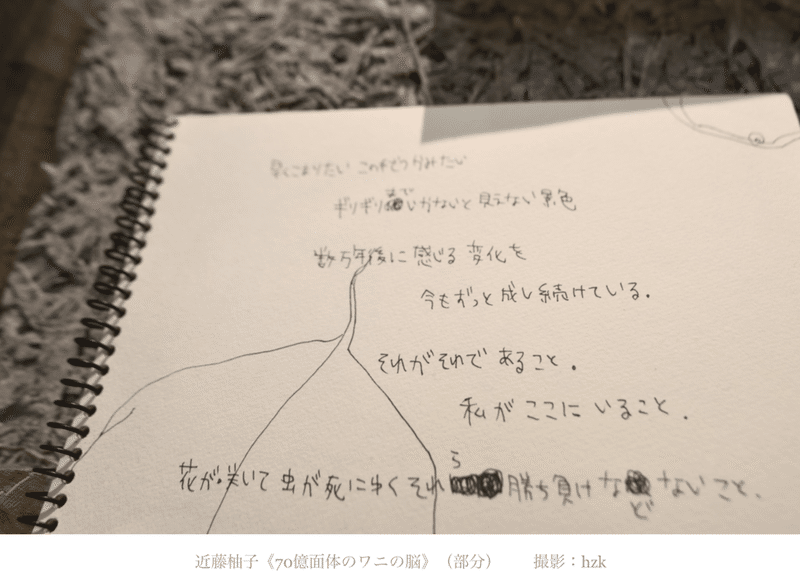 この手でつかみたい
ギリギリまでいかないと見えない景色
数万年後に感じる変化を
今もずっと成し続けている。
それがそれであること。
私がここにいること。
花が咲いて虫が死にゆくそれら勝ち負けなどないこと、
近藤柚子《70億面体のワニの脳》（部分）　撮影：hzk